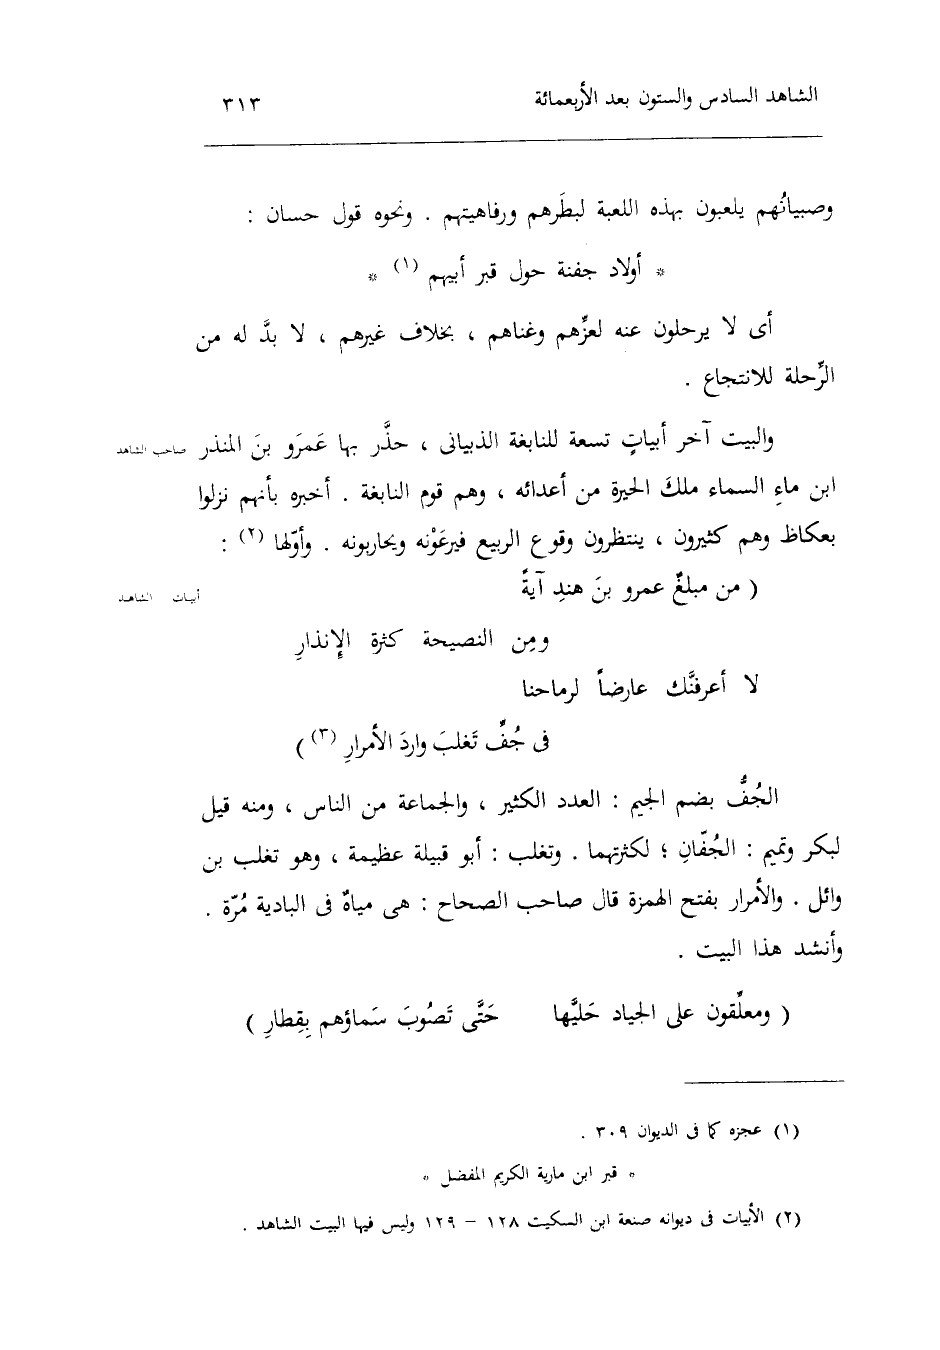 الشاهد السادس والستون بعد الأربعمائة ٣١٣
وصبيانُهم يلعبون بهذه اللعبة لبطَرهم ورفاهيتهم . ونحوه قول حسان :
* أولاد جفنة حول قبر أبيهم (١) *
أى لا يرحلون عنه لعزِّهم وغناهم ، بخلاف غيرهم ، لا بدَّ له من
الرِّحلة للانتجاع .
والبيت آخر أبياتٍ تسعة للنابغة الذبيانى ، حذَّر بها عَمرَو بنَ المنذر
صاحب الشاهد
ابن ماءِ السماء ملكَ الحيرة من أعدائه ، وهم قوم النابغة . أخبره بأنهم نزلوا
بعكاظ وهم كثيرون ، ينتظرون وقوع الربيع فيرعَوْنه ويحاربونه . وأوّلها (٢) :
( من مبلغٌ عمرو بنَ هندِ آيةً
أبيات الشاهد
ومِن النصيحة كثرة الإنذارِ
لا أعرفنَّك عارضاً لرماحنا
فى جُفِّ تَغلبَ واردَ الأمرارِ (٣) )
الجُفُّ بضم الجيم : العدد الكثير ، والجماعة من الناس ، ومنه قيل
لبكر وتميم : الجُفّانِ ؛ لكثرتهما . وتغلب : أبو قبيلة عظيمة ، وهو تغلب بن
وائل . والأمرار بفتح الهمزة قال صاحب الصحاح : هى مياهٌ فى البادية مُرّة .
وأنشد هذا البيت .
( ومعلِّقون على الجياد حَليَّها حَتَّى تَصُوبَ سَماؤهم بِقِطارِ )
(١) عجزه كما فى الديوان ٣٠٩ .
* قبر ابن مارية الكريم المفضل *
(٢) الأبيات فى ديوانه صنعة ابن السكيت ١٢٨ – ١٢٩ وليس فيها البيت الشاهد .